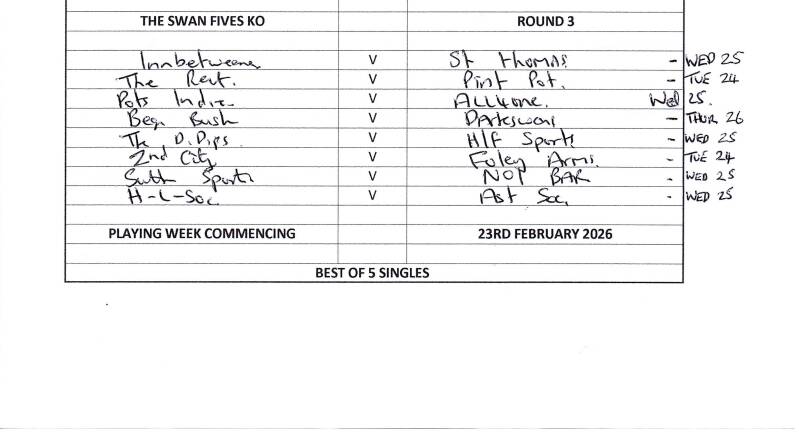 THE SWAN FIVES KO ROUND 3
Innbetweens V St Thomas - WED 25
The Rest. V Pint Pot. - TUE 24
Pots Indie V ALL4ONE. Wed 25.
Beg. Bush V - THUR 26
The D.Dips V H/F Sports - WED 25
2nd City V Foley Arms. - TUE 24
Sutt Sports V NOT BAR - WED 25
H-L-Soc V Ast Soc. - WED 25
PLAYING WEEK COMMENCING 23RD FEBRUARY 2026
BEST OF 5 SINGLES